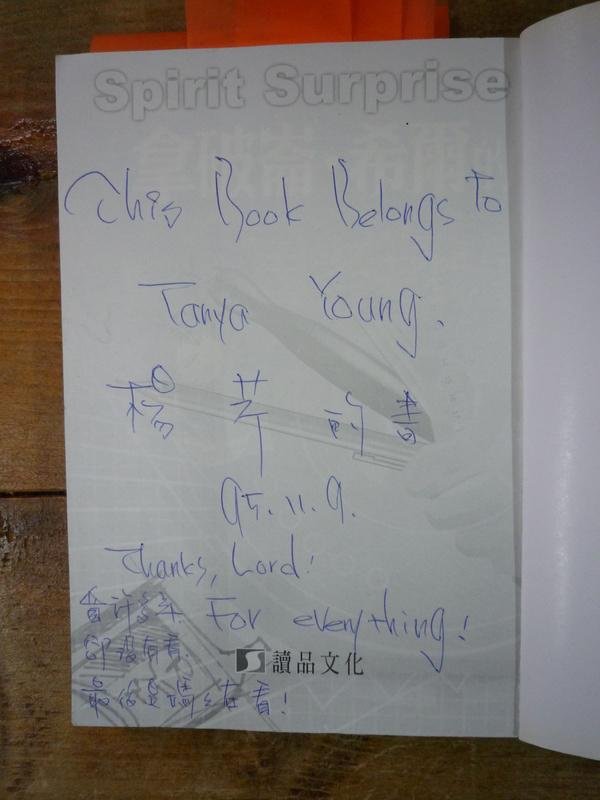 Spirit Surprise
拿破崙 希爾
This Book Belongs To
Tanya Young.
楊 芊 的 書
95.11.9.
Thanks, Lord!
For everything!
卻沒有看.
讀品文化
最後是媽在看!